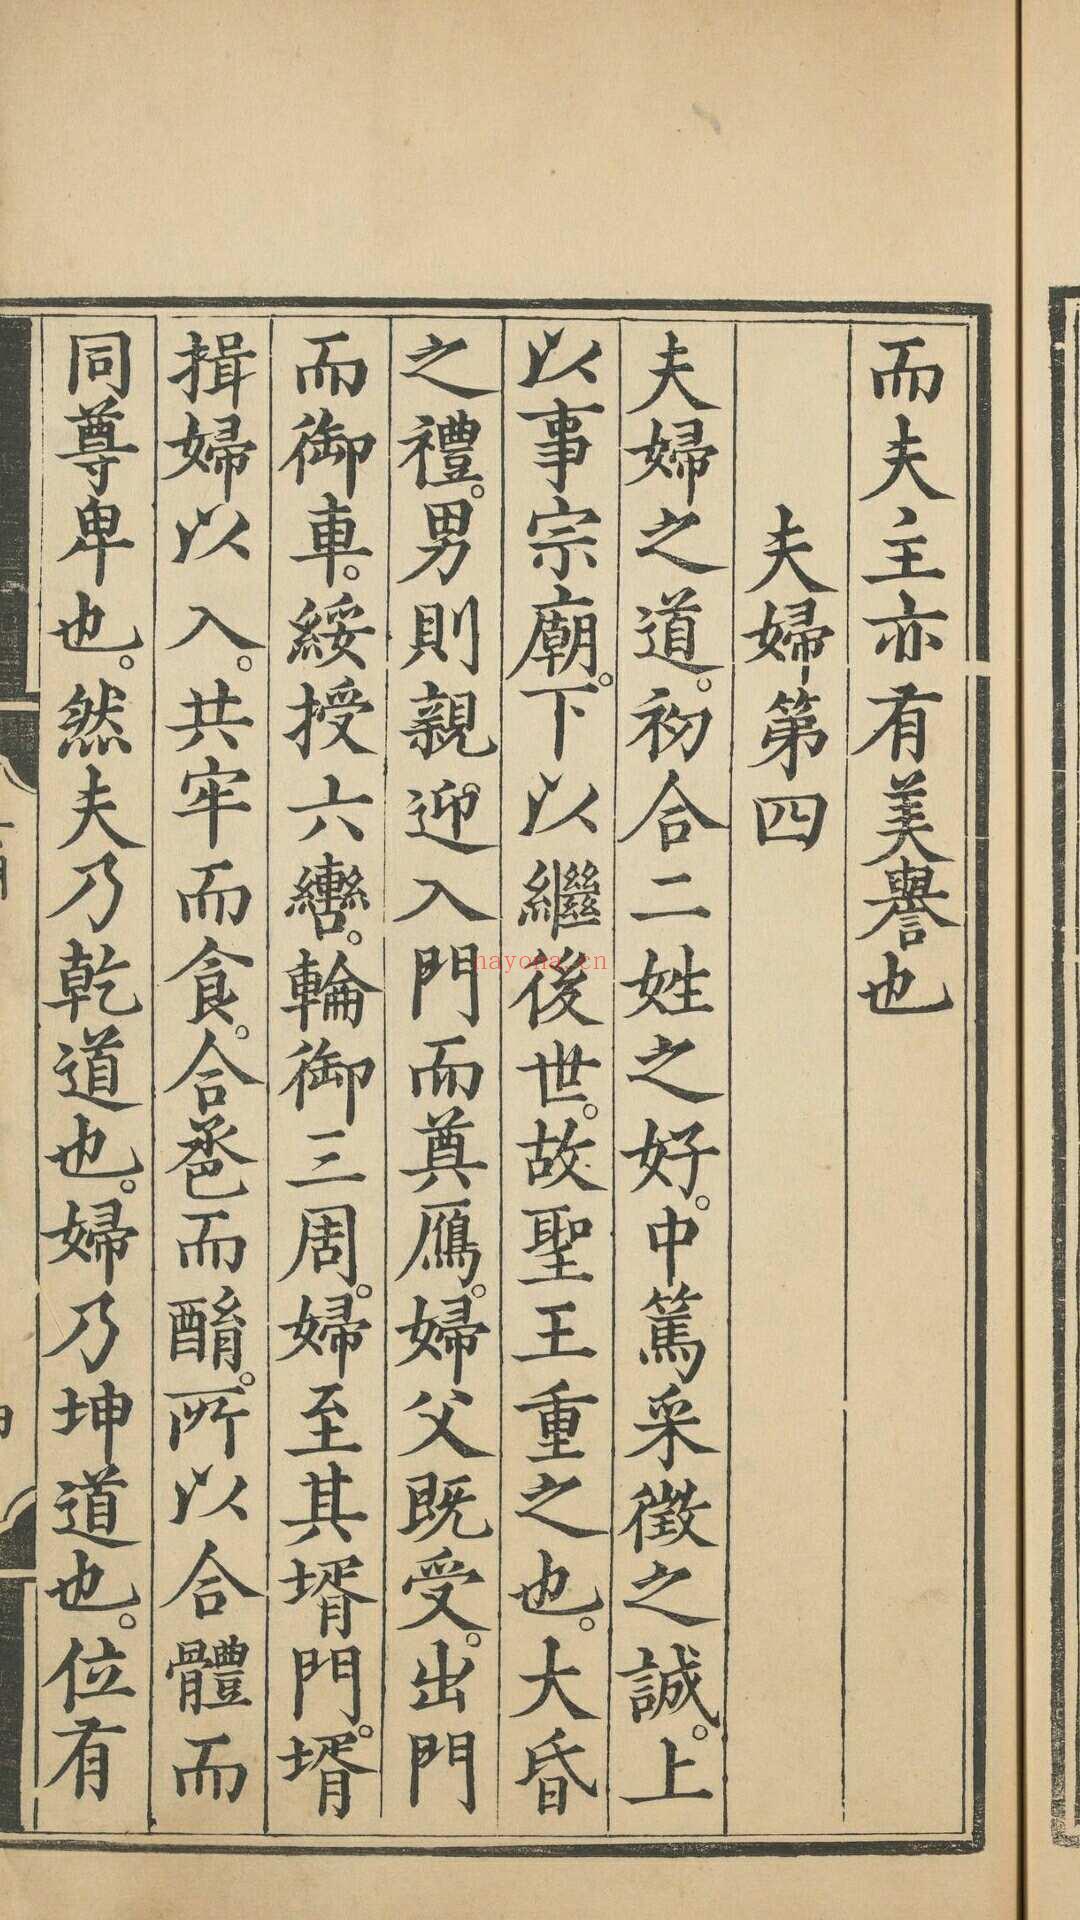 而夫主亦有美譽也
夫婦第四
夫婦之道。初合二姓之好。中篤采徵之誠。上
以事宗廟。下以繼後世。故聖王重之也。大昏
之禮。男則親迎。入門而奠鴈。婦父既受。出門
而御車。綏授六轡。輪御三周。婦至其壻門。壻
揖婦以入。共牢而食。合巹而酳。所以合體而
同尊卑也。然夫乃乾道也。婦乃坤道也。位有
nayona.cn